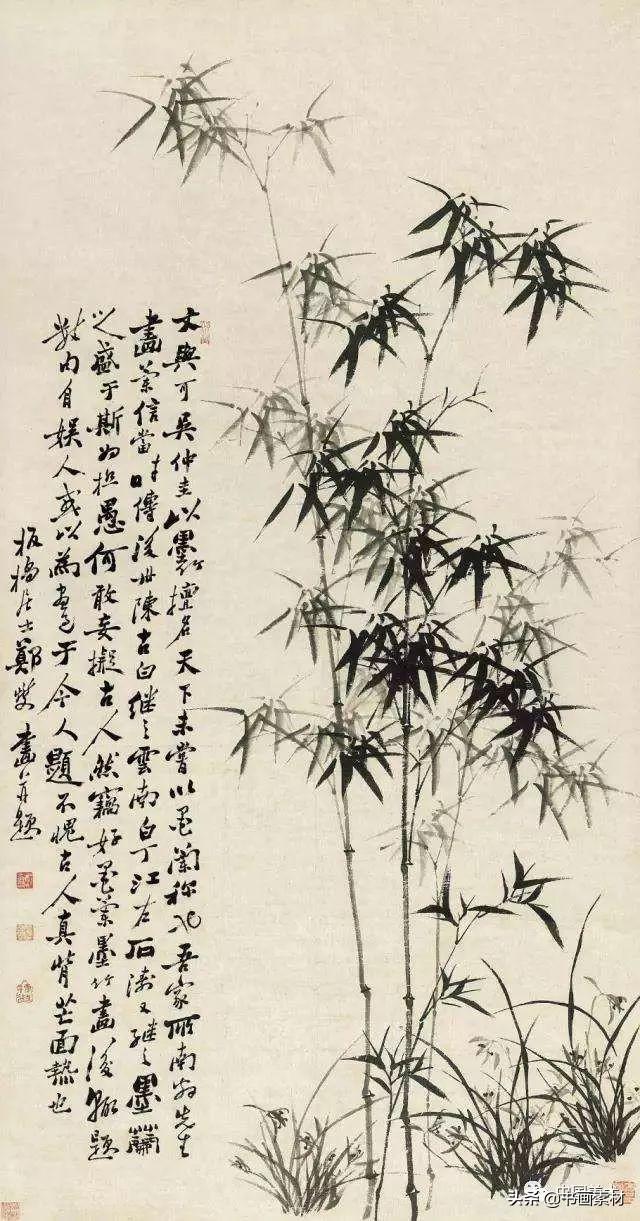 文與可吳仲圭以墨竹擅名天下未嘗以墨蘭称也吾家所南翁先生
畫蘭信當时傳後世陳古白继之雲南白丁江左石濤又継之墨蘭
之盛于斯为极愚何敢妄擬古人然竊好墨蘭墨竹畫後輒題
内自娱人或以為畫于今人題不愧古人真背芒面熱也
板橋居士鄭燮畫并題
头条@书画素材